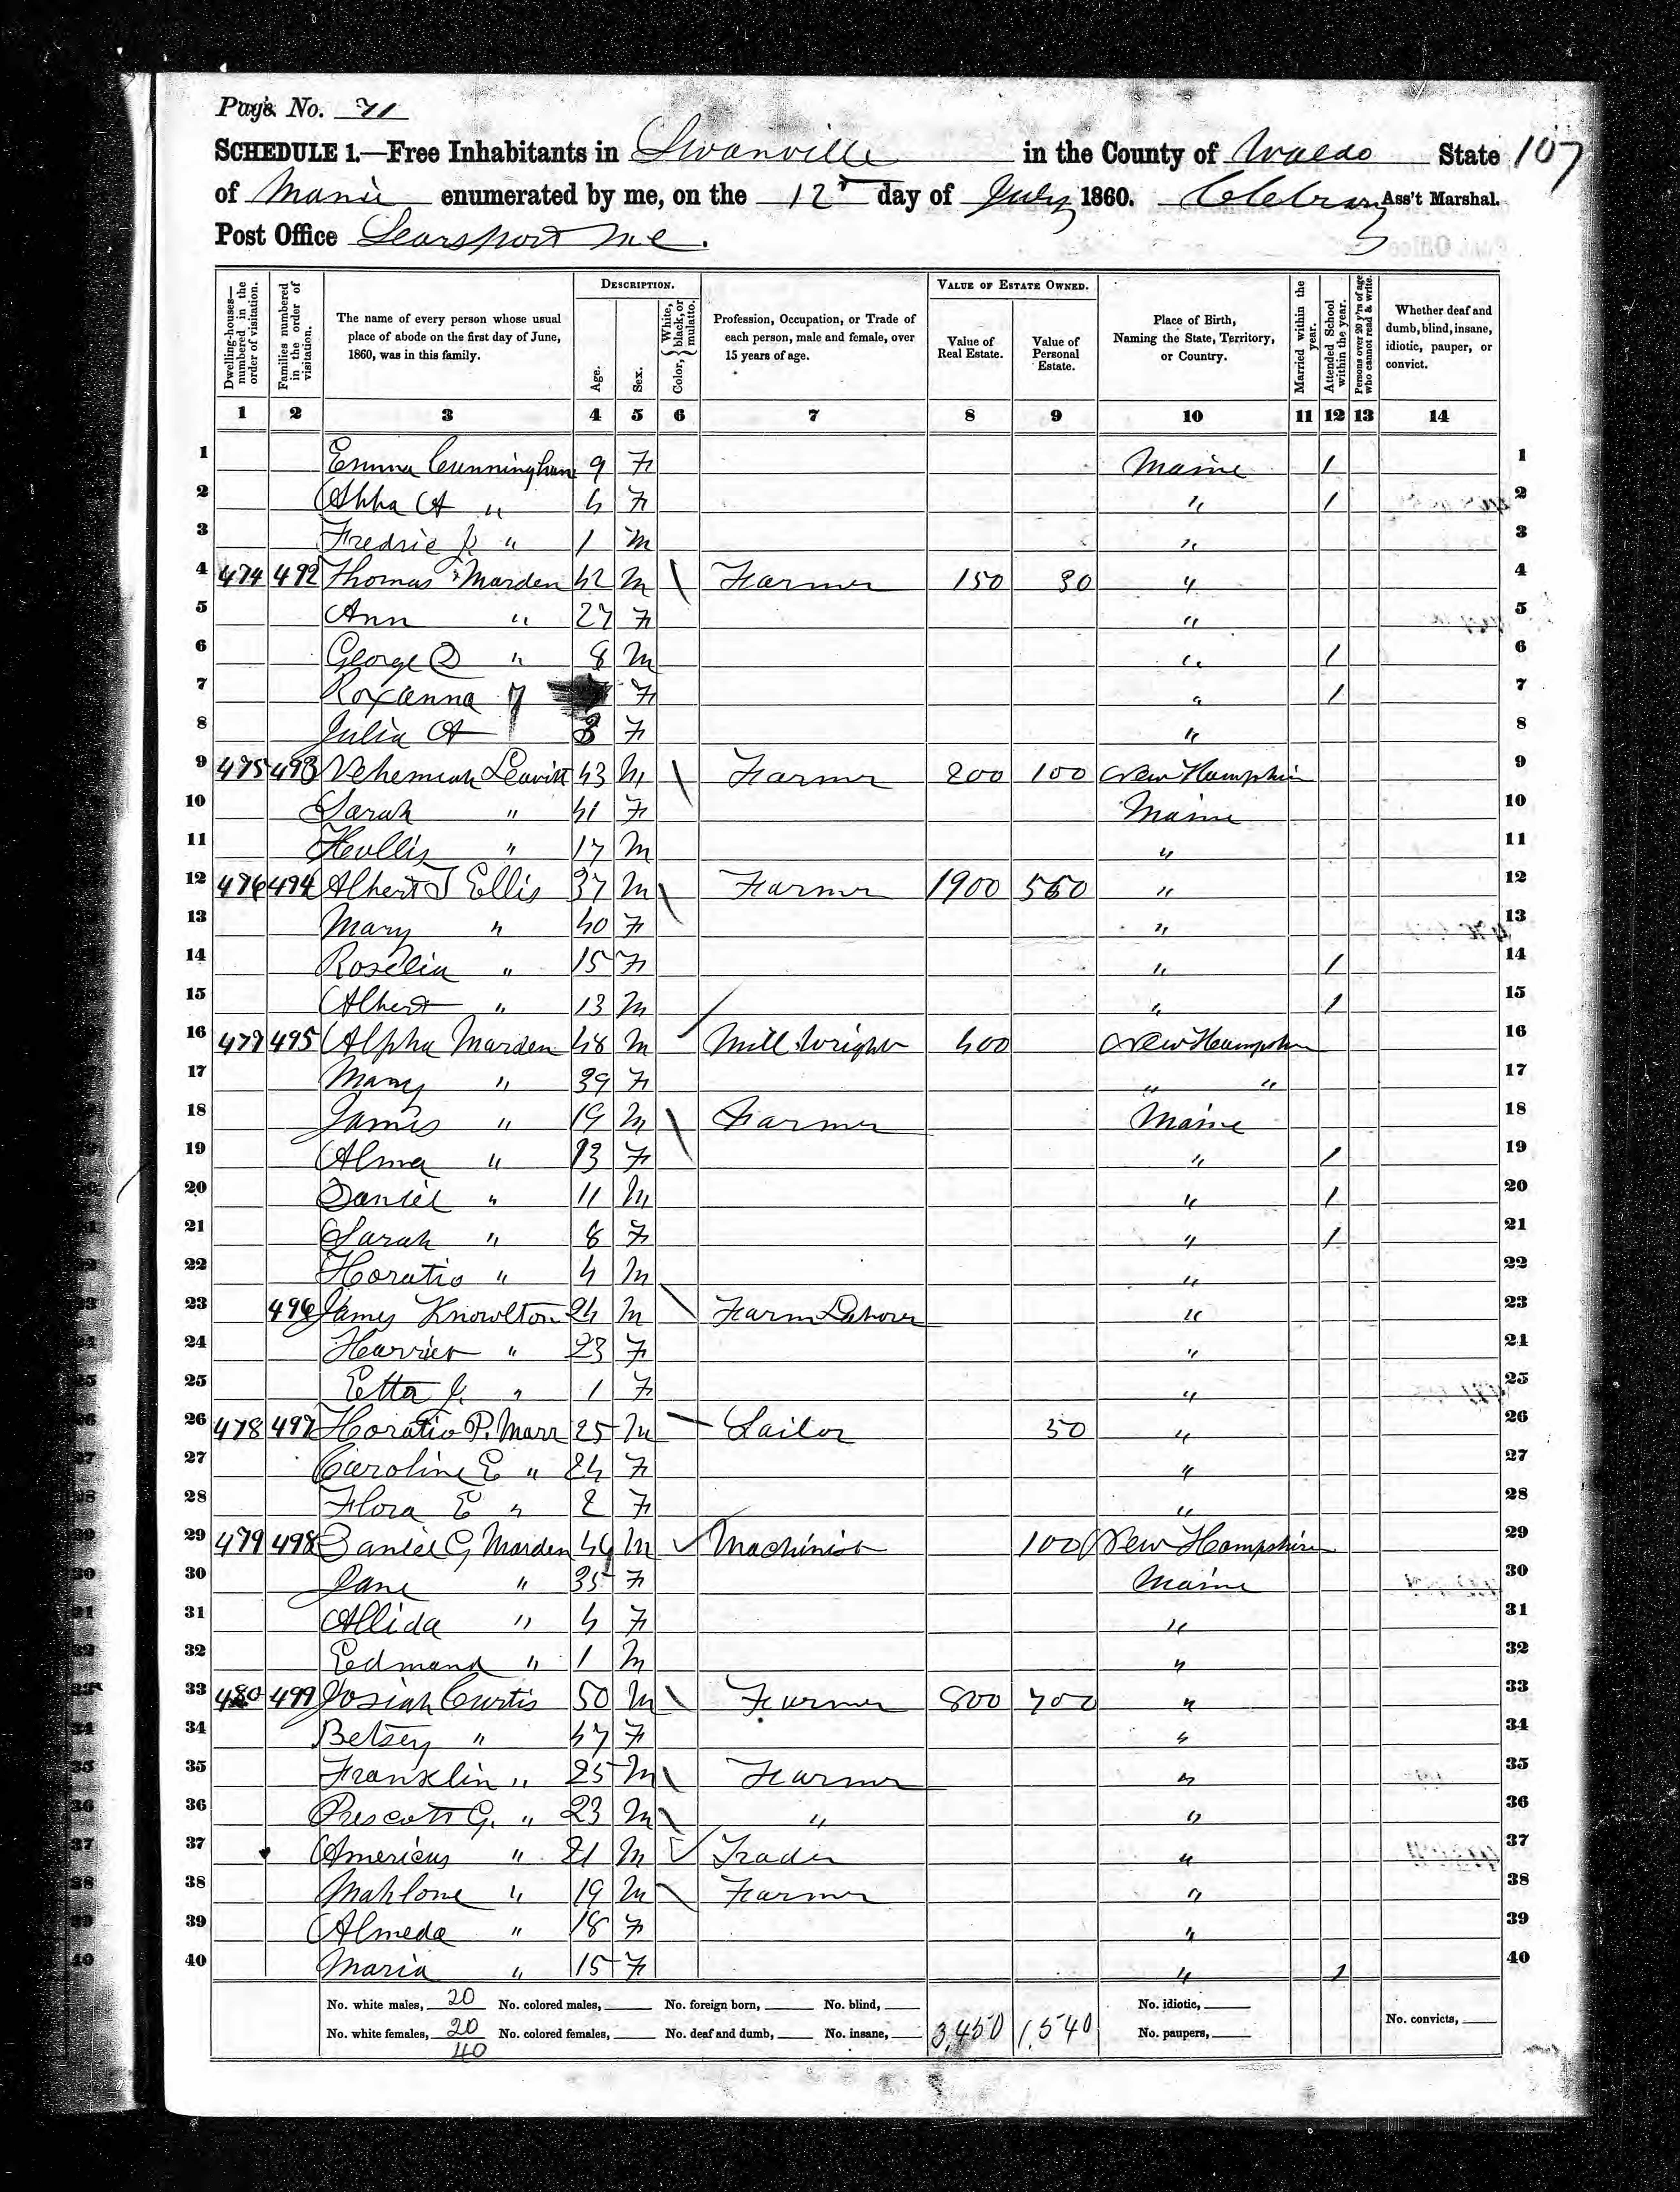 Page No. 71
SCHEDULE 1.—Free Inhabitants in Swanville in the County of Waldo State 107
of Maine enumerated by me, on the 12 day of July 1860. Ass't Marshal.
Post Office Searsport Me.
Dwelling-houses—numbered in the order of visitation.
Families numbered in the order of visitation.
The name of every person whose usual place of abode on the first day of June, 1860, was in this family.
DESCRIPTION.
Age.
Sex.
Color, } White, black, or mulatto.
Profession, Occupation, or Trade of each person, male and female, over 15 years of age.
VALUE OF ESTATE OWNED.
Value of Real Estate.
Value of Personal Estate.
Place of Birth, Naming the State, Territory, or Country.
Married within the year.
Attended School within the year.
Persons over 20 y'rs of age who cannot read & write.
Whether deaf and dumb, blind, insane, idiotic, pauper, or convict.
1 2 3 4 5 6 7 8 9 10 11 12 13 14
1 Emma Cunningham 9 F Maine / 1
2 Abba A " 4 F " / 2
3 Fredric " 1 M " 3
4 474 492 Thomas Marden 42 M \ Farmer 150 " 4
5 Ann " 27 F " 5
6 George " 8 M " / 6
7 Roxanna F " / 7
8 Julia A 3 F " 8
9 475 493 Nehemiah Leavitt 43 M \ Farmer 100 New Hampshire 9
10 Sarah " 41 F Maine 10
11 Hollis " 17 M " 11
12 476 494 Albert T Ellis 37 M \ Farmer 1900 560 " 12
13 Mary " 40 F " 13
14 Roselia " 15 F " / 14
15 Albert " 13 M " / 15
16 477 495 Alpha Marden 48 M / Mill Wright 400 New Hampshire 16
17 Mary " 39 F " " 17
18 James " 19 M \ Farmer Maine 18
19 Alma " 13 F " / 19
20 Daniel " 11 M " / 20
21 Sarah " 8 F " / 21
22 Horatio " 4 M " 22
23 496 James Knowlton 24 M \ Farm Laborer " 23
24 Harriet " 23 F " 24
25 Etta J. " 1 F " 25
26 478 497 Horatio P. Marr 25 M \ Sailor 50 " 26
27 Caroline E " 24 F " 27
28 Flora E " 2 F " 28
29 479 498 Daniel G Marden M ✓ Machinist 100 New Hampshire 29
30 Jane " 35 F Maine 30
31 Allida " 4 F " 31
32 Edmand " 1 M " 32
33 480 499 Josiah Curtis 50 M \ Farmer 800 700 " 33
34 Betsey " 47 F " 34
35 Franklin " 25 M \ Farmer " 35
36 Prescott G. " 23 M \ " " 36
37 Americus " 21 M ✓ Trader " 37
38 Mahlone " 19 M \ Farmer " 38
39 Almeda " 18 F " 39
40 Maria " 15 F " 1 40
No. white males, 20 No. colored males, No. foreign born, No. blind, No. idiotic,
No. white females, 20 No. colored females, No. deaf and dumb, No. insane, 3,450 1,540 No. paupers, No. convicts,
40